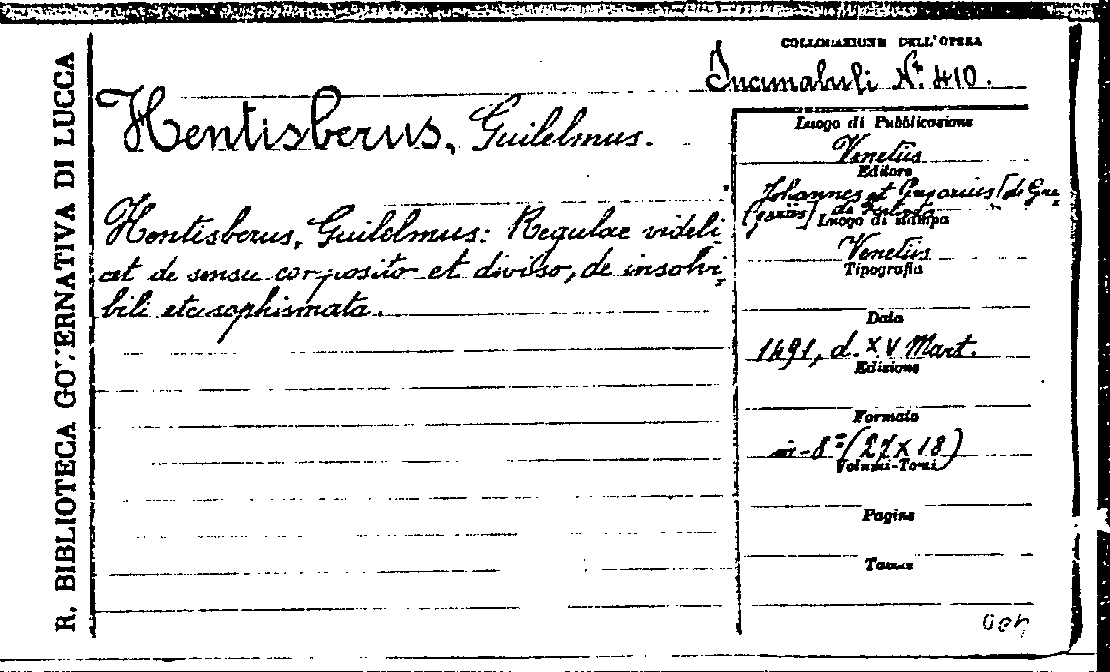 R. BIBLIOTECA GOVERNATIVA DI LUCCA
COLLOCAZIONE DELL'OPERA
Incunabuli N.º 410.
Hentisberus, Guilelmus.
Hentisberus, Guilelmus: Regulae videli
cet de sensu composito et diviso, de insolvi
bili etc. sophismata.
Luogo di Pubblicazione
Venetiis
Editore
Johannes et Gregorius [de Gre
goriis] de
Luogo di stampa
Venetiis
Tipografia
Data
1491, d. XV Mart.
Edizione
Formato
in-8º (27 x 18)
Volumi-Tomi
Pagine
Tavole